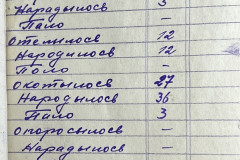 Нарадылось 3
Пало –
Отелилось 12
Народилось 12
Поло –
Окотылось 27
Народылось 36
Пало 3
Опоросылось –
Нарадылось –